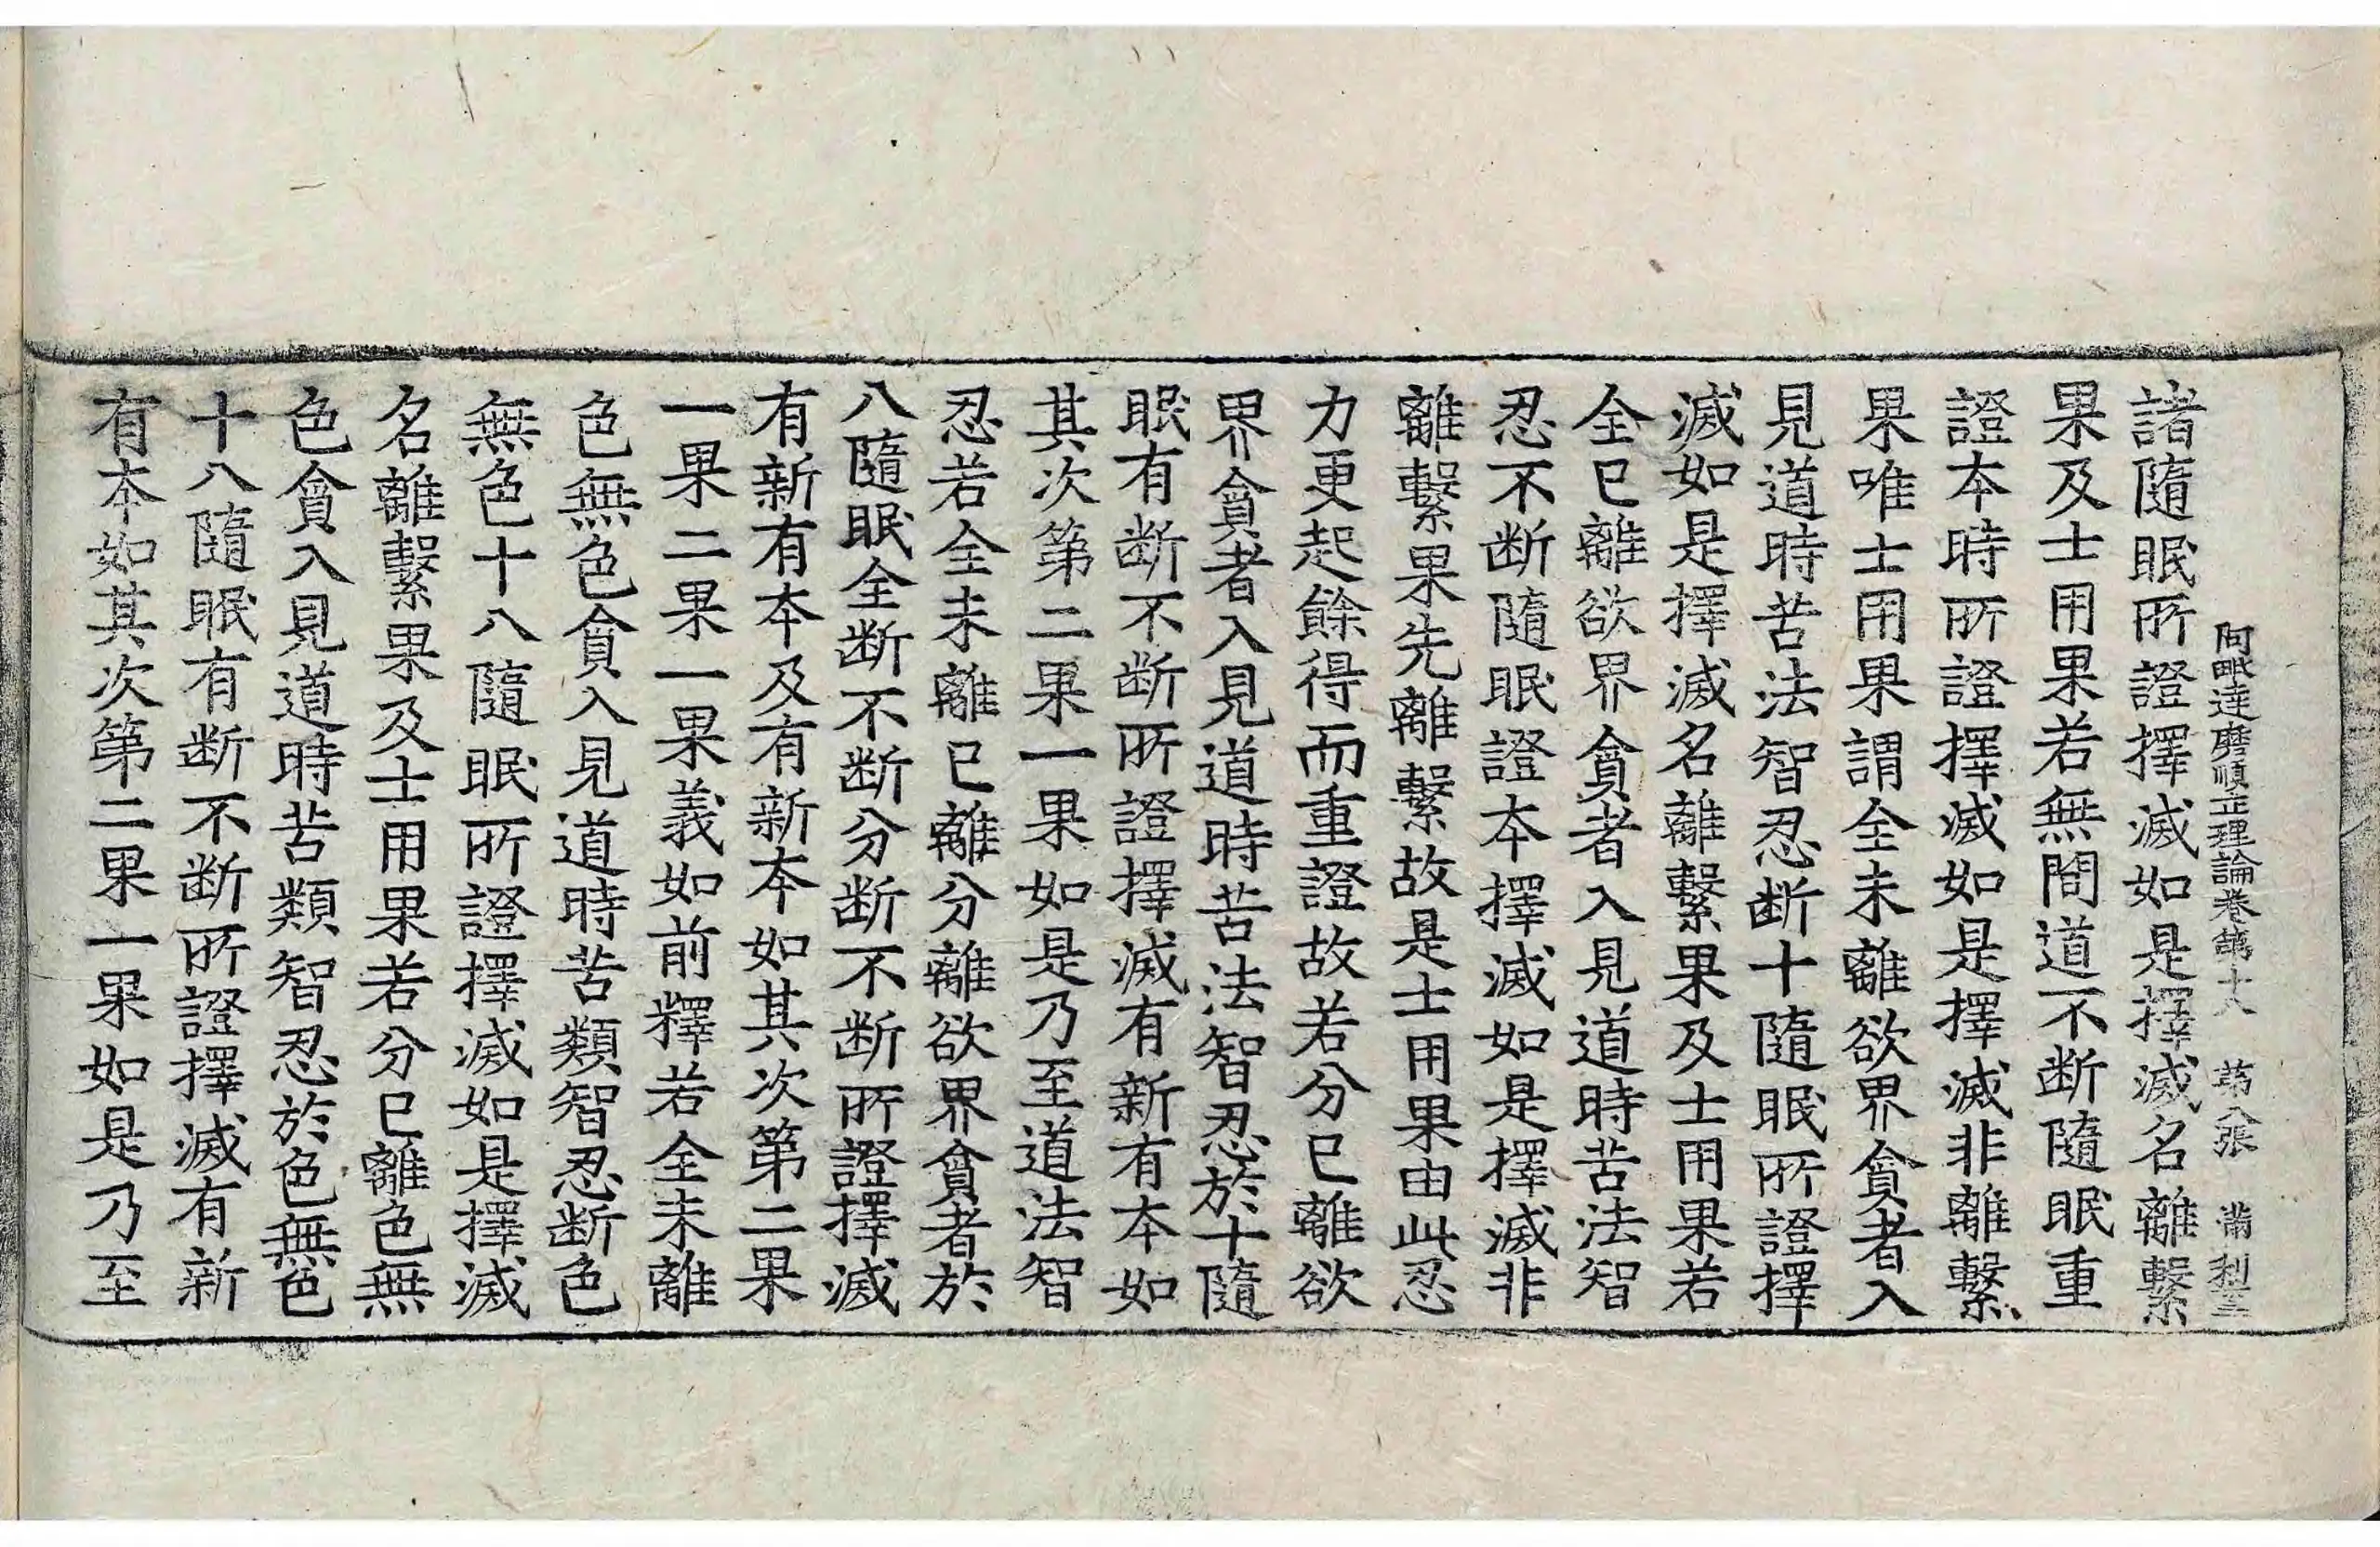 阿毗達磨順正理論卷第十八 第八張 滿 利
諸隨眠所證擇滅如是擇滅名離繫
果及士用果若無間道不断隨眠重
證本時所證擇滅如是擇滅非離繫
果唯士用果謂全未離欲界貪者入
見道時苦法智忍断十隨眠所證擇
滅如是擇滅名離繫果及士用果若
全已離欲界貪者入見道時苦法智
忍不断隨眠證本擇滅如是擇滅非
離繫果先離繫故是士用果由此忍
力更起餘得而重證故若分已離欲
界貪者入見道時苦法智忍於十隨
眠有断不断所證擇滅有新有本如
其次第二果一果如是乃至道法智
忍若全未離已離分離欲界貪者於
八隨眠全断不断分断不断所證擇滅
有新有本及有新本如其次第二果
一果二果一果義如前釋若全未離
色無色貪入見道時苦類智忍断色
無色十八隨眠所證擇滅如是擇滅
名離繫果及士用果若分已離色無
色貪入見道時苦類智忍於色無色
十八隨眠有断不断所證擇滅有新
有本如其次第二果一果如是乃至